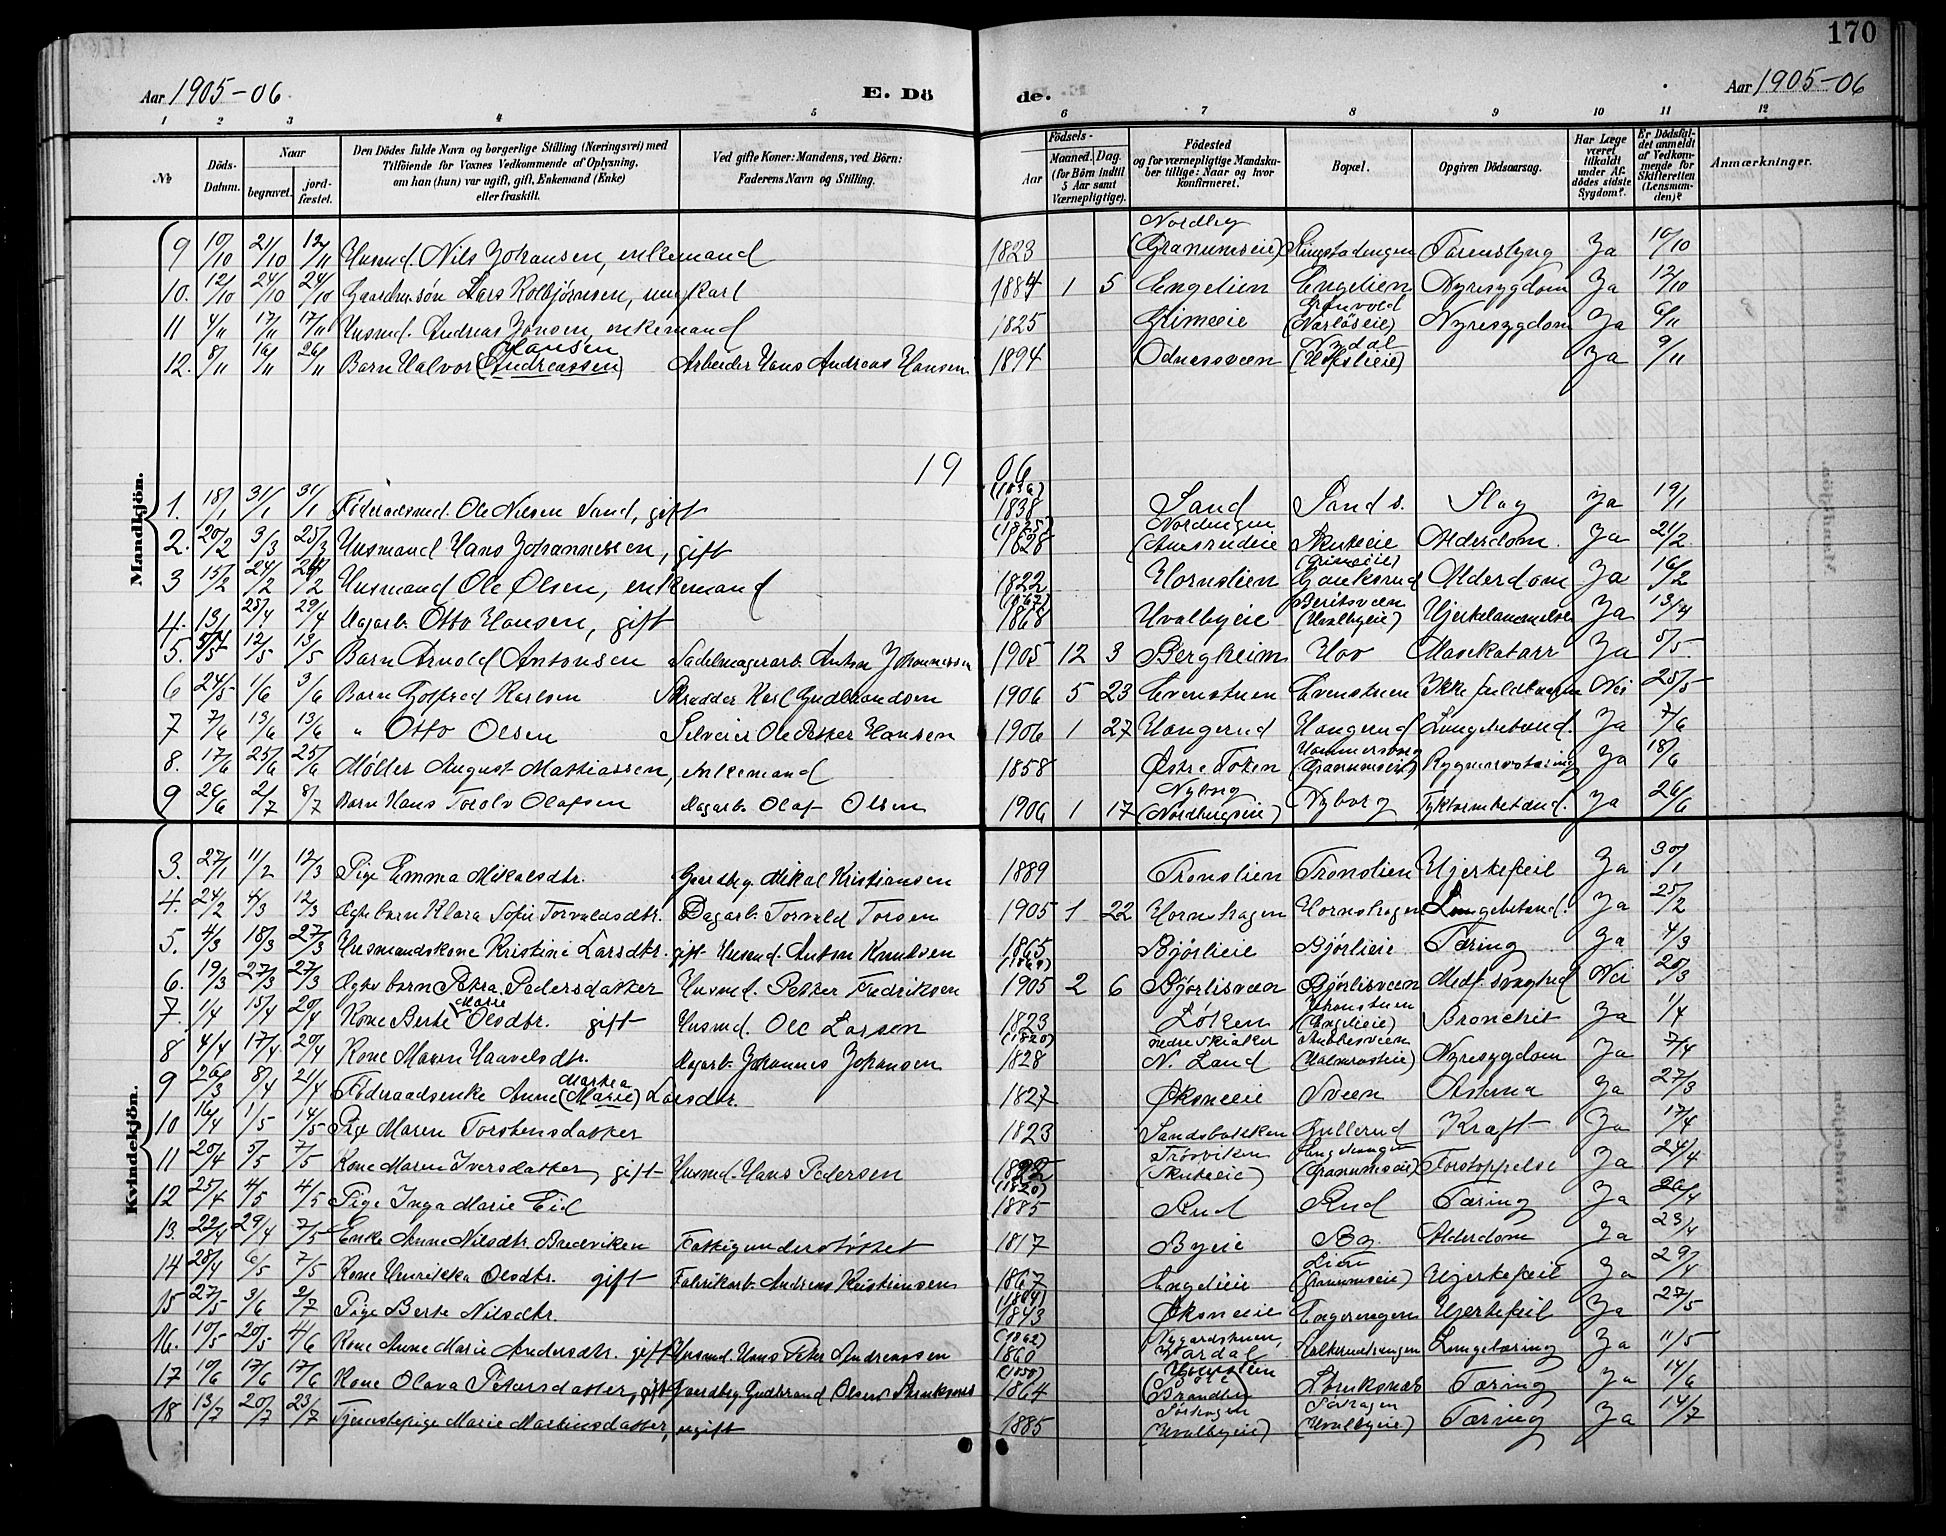 170
Aar 1905-06 E. Dö de. Aar 1905-06
1 2 3 4 5 6 7 8 9 10 11 12
№ Döds-Datum. Naar begravet. jordfæstet. Den Dödes fulde Navn og borgerlige Stilling (Næringsvei) med Tilföiende for Voxnes Vedkommende af Oplysning, om han (hun) var ugift, gift, Enkemand (Enke) eller fraskilt. Ved gifte Koner: Mandens, ved Börn: Faderens Navn og Stilling. Födsels- Aar Maaned. Dag. (for Börn indtil 5 Aar samt Værnepligtige). Födested og for værnepligtige Mandskaber tillige: Naar og hvor konfirmeret. Bopæl. Opgiven Dödsaarsag. Har Læge været tilkaldt under Afdödes sidste Sygdom? Er Dödsfaldet anmeldt af Vedkommende for Skifteretten (Lensmanden)? Anmærkninger.
Mandkjön.
9 10/10 21/10 12/11 Husmd. Nils Johansen, enkemand 1823 Nordby (Granumseie) Ringstadengen Ja 10/10
10. 12/10 24/10 24/10 Gaardmsøn Lars Kolbjørnsen, ungkarl 1884 1 5 Engelien Engelien Nyresygdom Ja 12/10
11 4/11 17/11 17/11 Husmd. Andreas Jonsen, enkemand 1825 Grimeie Grønvold Nyresygdom Ja 6/11
12. 8/11 16/11 26/11 Barn Halvor Hansen (Andreassen) Arbeider Hans Andreas Hansen 1894 Odnessveen Nydal Ja 9/11
1906
1. 18/1 31/1 31/1 Føderaadsmd. Ole Nilsen Sand, gift 1838 Sand Sand s. Slag Ja 19/1
2. 20/2 3/3 25/3 Husmand Hans Johannessen, gift 1828 Nordengen Skuteeie Alderdom Ja 21/2
3 15/2 24/2 24/2 Husmand Ole Olsen, enkemand 1822 Hornslien Alderdom Ja 16/2
4. 13/4 25/4 29/4 Dagarb. Otto Hansen, gift (1867) 1868 Hvalbyeie Beritsveen (Hvalbyeie) Ja 13/4
5. 5/5 12/5 13/5 Barn Arnold Antonsen Sadelmagerarb. Anton Johannessen 1905 12 3 Bergheim Hov Mavekatarr Ja 5/5
6 24/5 1/6 3/6 Barn Gotfred Karlsen Skrædder Karl Gudbrandsen 1906 5 23 Evenstuen Evenstuen Ikke fuldbaaren Nei 25/5
7 7/6 13/6 13/6 " Otto Olsen Selveier Ole Petter Hansen 1906 1 27 Haugerud Haugerud Lungebetænd. Ja 7/6
8. 17/6 25/6 25/6 Møller August Mathiassen, enkemand 1858 Østre Toten (Granumseie) Rygmarvstæring Ja 18/6
9 26/6 2/7 8/7 Barn Hans Torolv Olafsen Dagarb. Olaf Olsen 1906 1 17 Nyborg (Nordbyseie) Nyborg Tyktarmbetænd. Ja 26/6
Kvindekjön.
3. 27/1 11/2 12/3 Pige Emma Mikalsdtr. Gaardbg. Mikal Kristiansen 1889 Tronslien Tronslien Hjertefeil Ja 30/1
4. 24/2 4/3 12/3 Ægte barn Klara Sofie Torvaldsdtr. Dagarb. Torvald Torsen 1905 1 22 Hornshagen Hornshagen Lungebetænd. Ja 25/2
5. 4/3 18/3 27/3 Husmandskone Kristine Larsdtr. gift Husmd. Anton Knudsen 1865 Bjørlieie Bjørlieie Tæring Ja 4/3
6. 19/3 27/3 27/3 Ægte barn Petra Pedersdatter Husmd. Petter Fredriksen 1905 2 6 Bjørlisveen Bjørlisveen Medf. svaghed Nei 20/3
7. 1/4 15/4 20/4 Kone Berte Marie Olsdtr. gift Husmd. Ole Larsen 1823 Løken (Engelieie) Bronchit Ja 1/4
8 4/4 17/4 20/4 Kone Maren Haavelsdtr. Dagarb. Johannes Johansen (1820) 1828 N. Land Nyresygdom Ja 7/4
9 26/3 8/4 21/4 Føderaadsenke Anne Martea (Marie) Larsdtr. 1827 Øksneeie Sveen Astma Ja 27/3
10 16/4 1/5 14/5 Pige Maren Torstensdatter 1823 Sandsbakken Gullerud Kræft Ja 17/4
11 20/4 5/5 7/5 Kone Maren Iversdatter, gift Husmd. Hans Pedersen Trosviken (Skuteeie) (Granumseie) Forstoppelse Ja 24/4
12 25/4 4/5 4/5 Pige Inga Marie Eid (1820) 1885 Rud Rud Tæring Ja 26/4
13. 22/4 29/4 7/5 Enke Anne Nilsdtr. Bredviken Fattigunderstøttet 1817 Byeie By. Alderdom Ja 23/4
14 28/4 6/5 7/5 Kone Henrikka Olsdtr. gift Fabrikarb. Andreas Kristiansen 1867 Engelieie Lien (Granumseie) Hjertefeil Ja 29/4
15 27/5 3/6 2/7 Pige Berte Nilsdtr. 1843 Øksneeie Hjertefeil Ja 27/5
16. 10/5 20/5 4/6 Kone Anne Marie Andersdtr. gift Husmd. Hans Peter Andreassen (1862) 1860 Nygardstuen, Vardal Lungetæring Ja 11/5
17 10/6 17/6 17/6 Kone Olava Petersdatter, gift Gaardbg. Gudbrand Olsen 1864 Brandbu Tæring Ja 14/6
18 13/7 20/7 23/7 Tjenestepige Marie Martinsdatter, ugift 1885 Sørhagen (Hvalbyeie) Sørhagen (Hvalbyeie) Tæring Ja 14/7